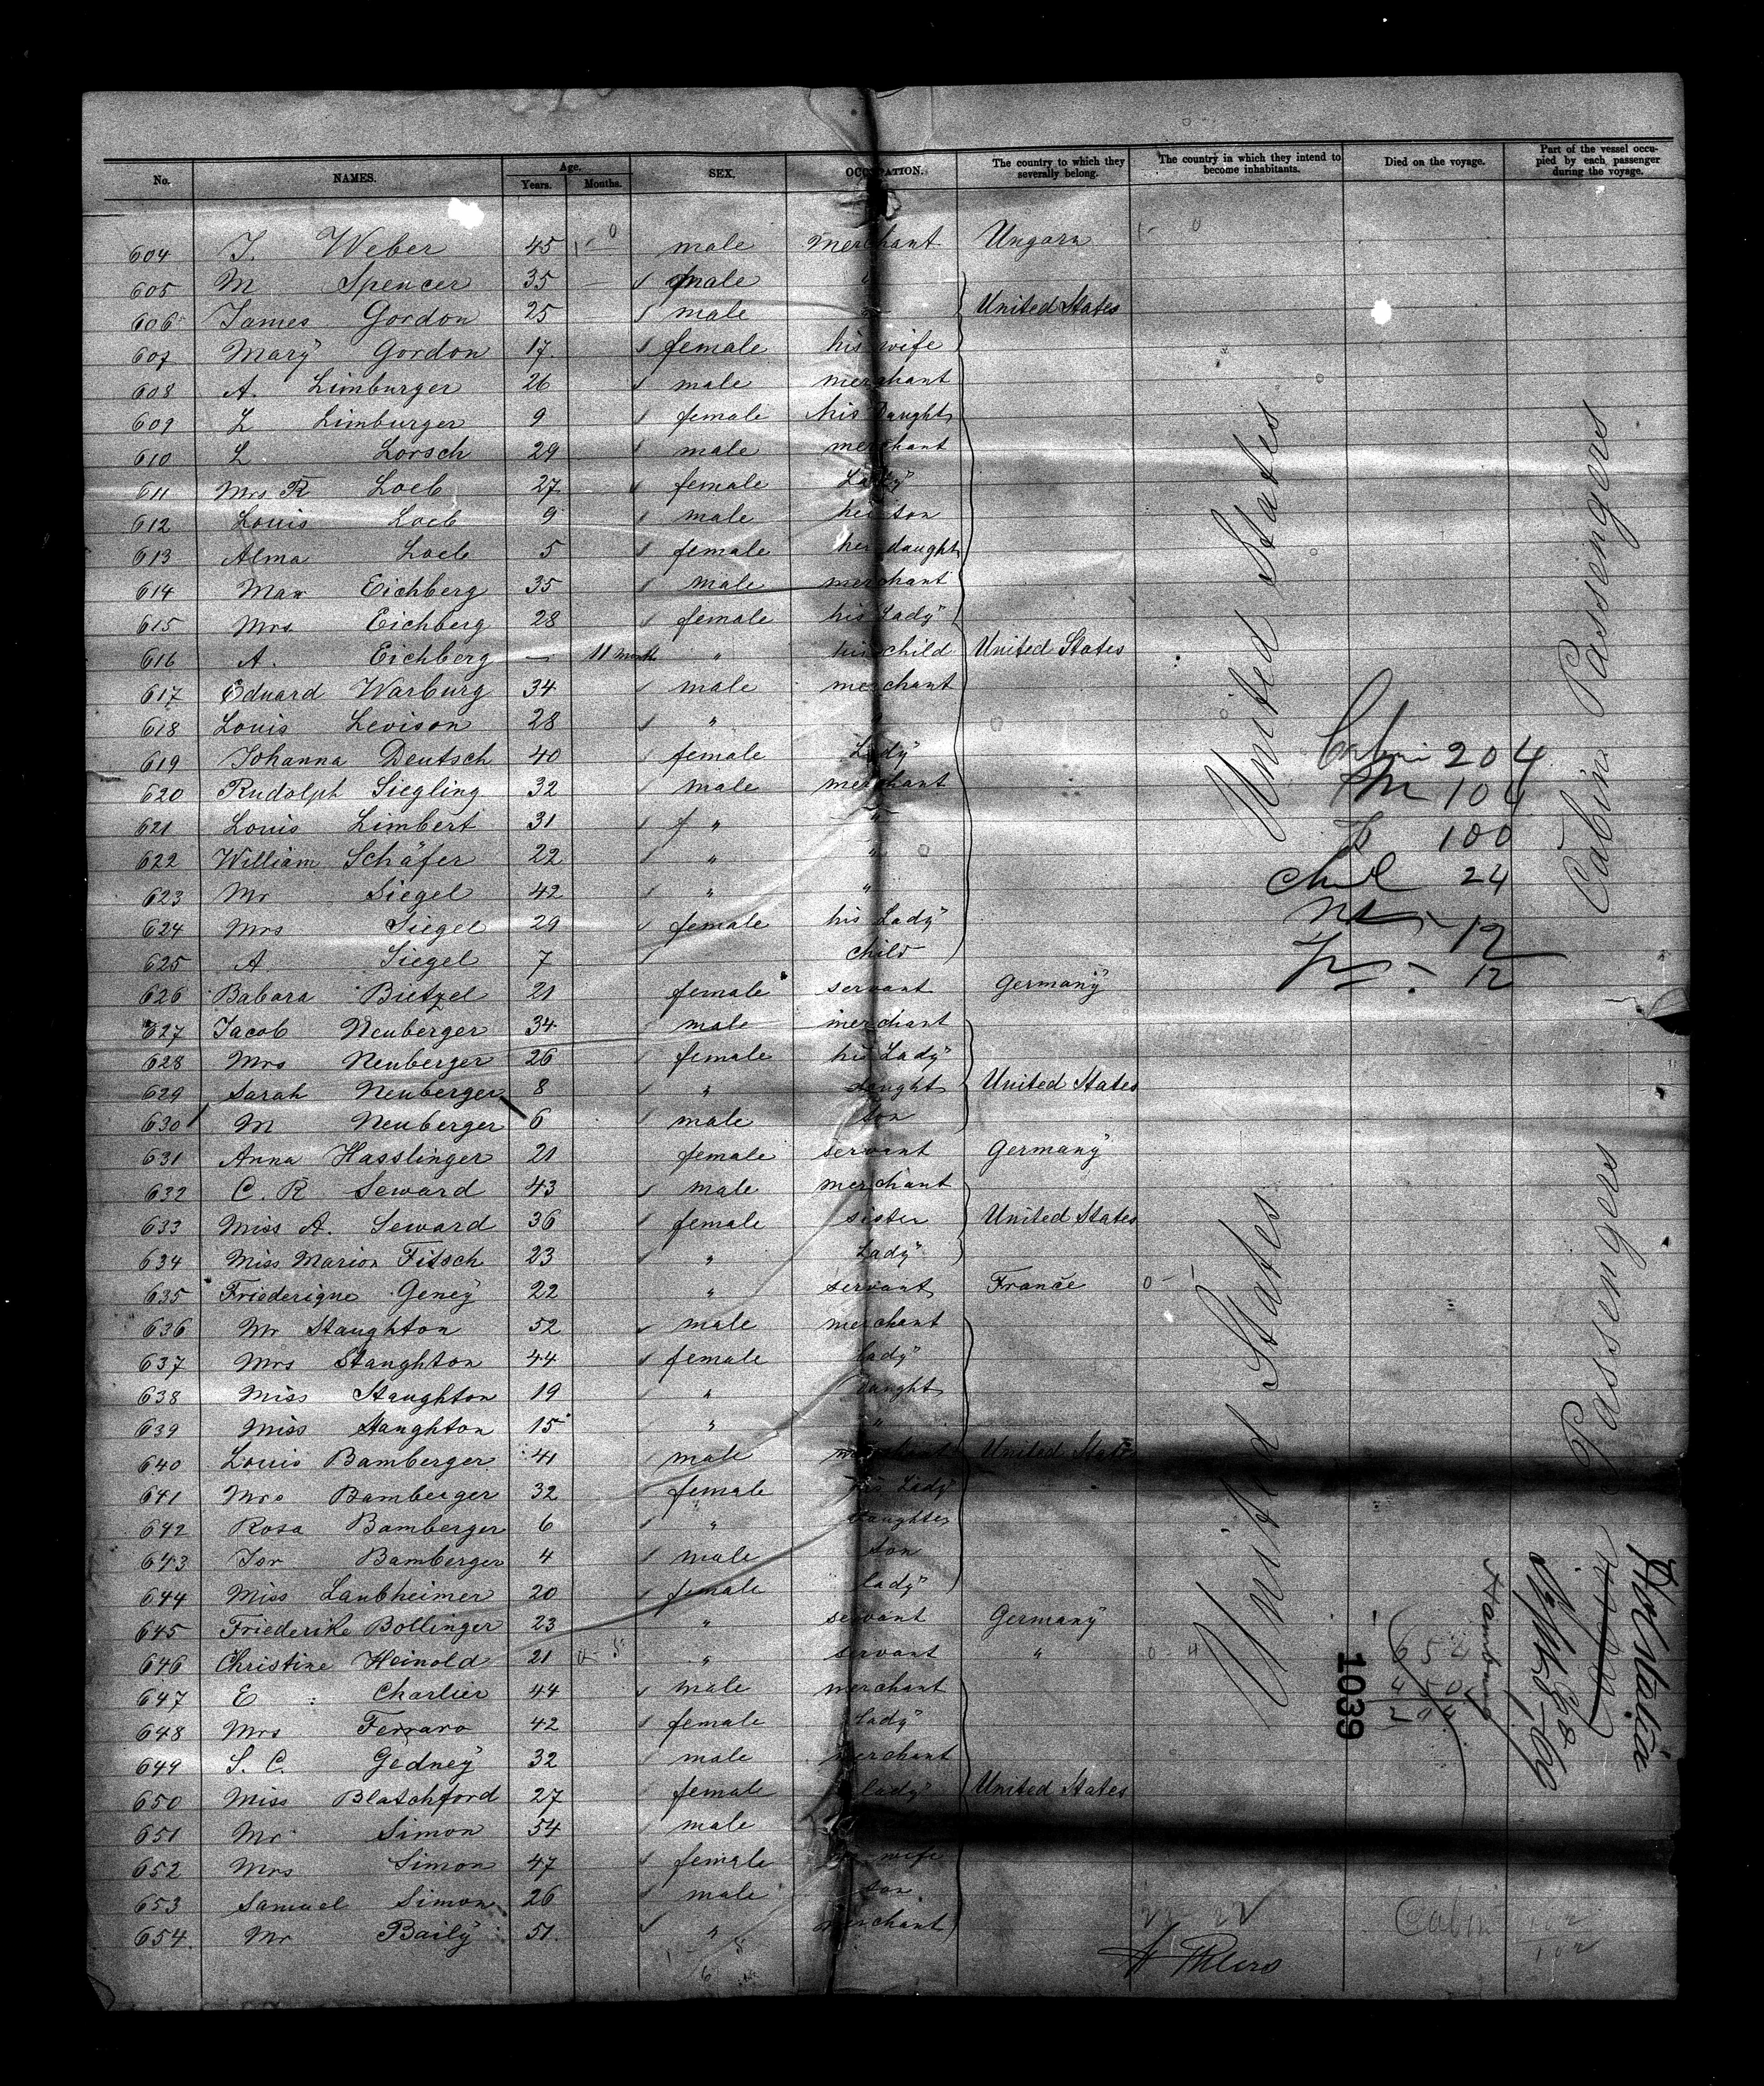 No. NAMES. Age. Years. Months. SEX. OCCUPATION. The country to which they severally belong. The country in which they intend to become inhabitants. Died on the voyage. Part of the vessel occupied by each passenger during the voyage.
604 J. Weber 45 male merchant Ungarn
605 M Spencer 35 male "
606 James Gordon 25 male " United States
607 Mary Gordon 17 female his wife
608 A. Limburger 26 male merchant
609 L Limburger 9 female his Daught
610 L Lorsch 29 male merchant
611 Mrs R Loeb 27 female Lady
612 Louis Loeb 9 male her son
613 Alma Loeb 5 female her daught
614 Max Eichberg 35 male merchant
615 Mrs Eichberg 28 female his Lady
616 A. Eichberg — 11 month " his child United States
617 Eduard Warburg 34 male merchant
618 Louis Levison 28 " "
619 Johanna Deutsch 40 female Lady
620 Rudolph Siegling 32 male merchant
621 Louis Limbert 31 " "
622 William Schäfer 22 " "
623 Mr Siegel 42 " "
624 Mrs Siegel 29 female his Lady
625 A Siegel 7 child
626 Babara Bietzel 21 female servant Germany
627 Jacob Neuberger 34 male merchant
628 Mrs Neuberger 26 female his Lady
629 Sarah Neuberger 8 " daught United States
630 M Neuberger 6 male son
631 Anna Hasslinger 21 female servant Germany
632 C. R Seward 43 male merchant
633 Miss A. Seward 36 female sister United States
634 Miss Marion Fitsch 23 " Lady
635 Friederique Geney 22 " servant France
636 Mr Staughton 52 male merchant
637 Mrs Staughton 44 female Lady
638 Miss Staughton 19 " Daught
639 Miss Staughton 15 " "
640 Louis Bamberger 41 male merchant United States
641 Mrs Bamberger 32 female his Lady
642 Rosa Bamberger 6 " daughter
643 Isr Bamberger 4 male son
644 Miss Laubheimer 20 female lady
645 Friederike Bollinger 23 " servant Germany
646 Christine Heinold 21 " servant "
647 E Charlier 44 male merchant
648 Mrs Ferraro 42 female Lady
649 S. C. Gedney 32 male merchant
650 Miss Blatchford 27 female lady United States
651 Mr Simon 54 male
652 Mrs Simon 47 female his wife
653 Samuel Simon 26 male son
654 Mr Baily 51 " merchant
United States
United States
Cabin Passengers
Passengers
Cabin 204
M 104
F 100
Chil 24
12
12
1039
654
450
204
Hamburg
Holsatia
Cabin
Cabin 102
102
22 22